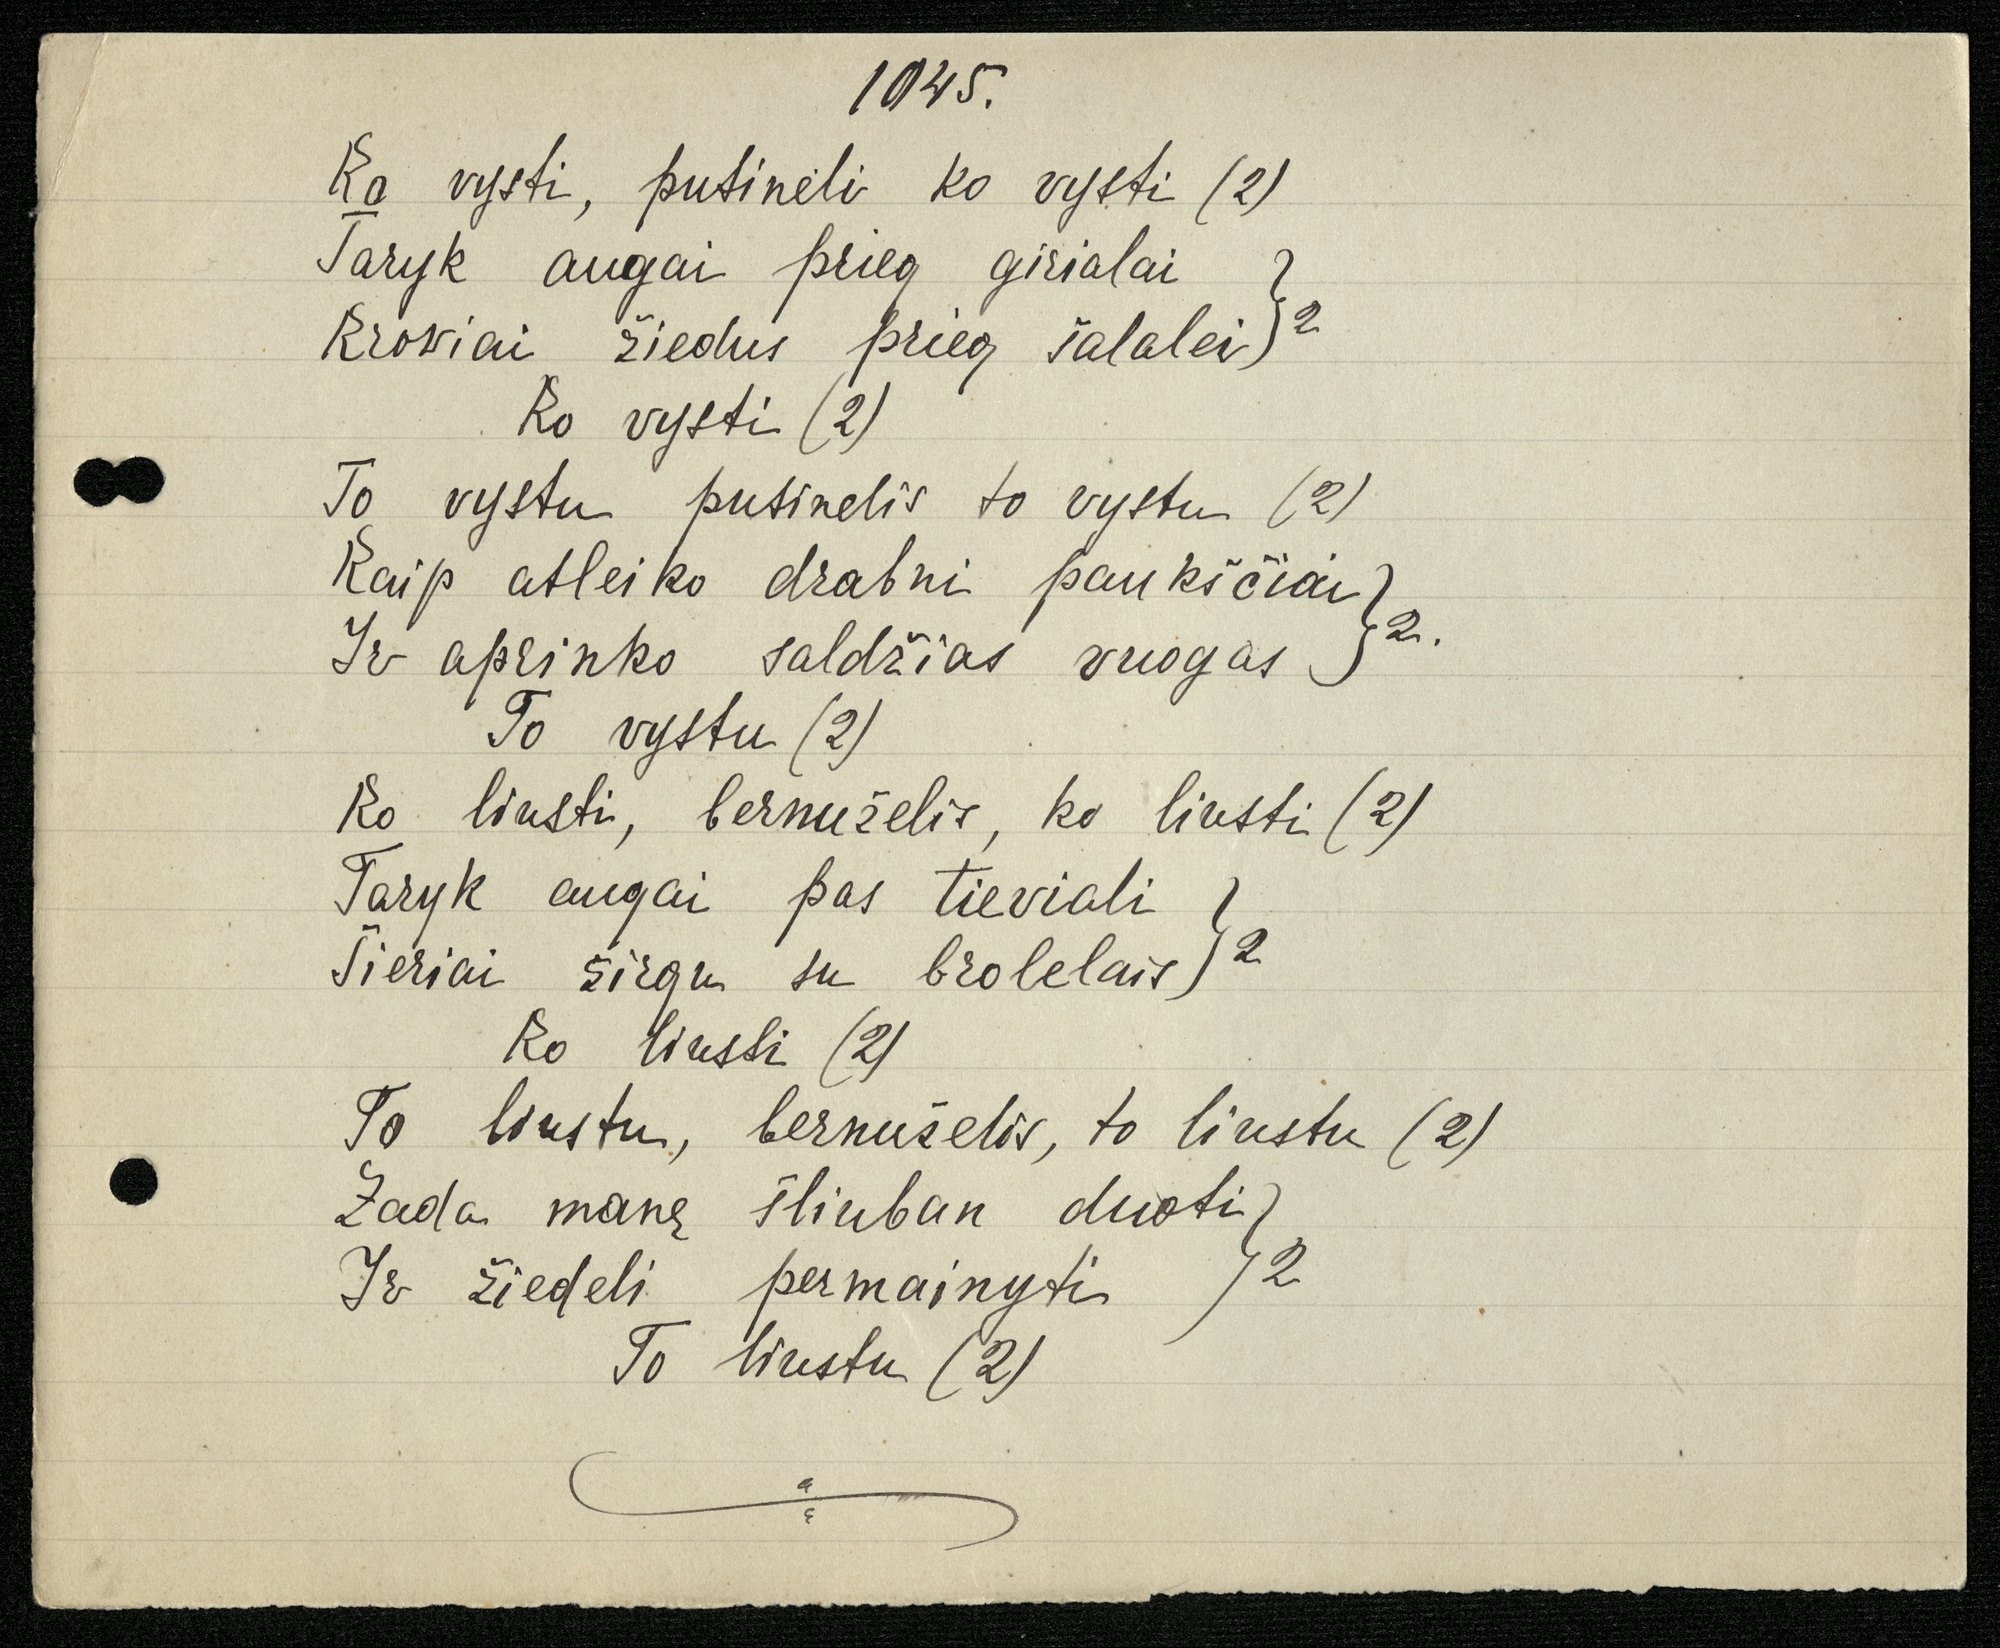 1045.
Ko vysti, putinėli ko vysti (2)
Taryk augai prieg girialai
Kroviai žiedus prieg šalalei } 2
Ko vysti (2)
To vystu putinelis to vystu (2)
Kaip atleiko drabni paukščiai
Ir aprinko saldžias vuogas } 2.
To vystu (2)
Ko liusti, bernuželis, ko liusti (2)
Taryk augai pas tieviali
Šieriai žirgu su brolelais } 2
Ko liusti (2)
To liustu, bernuželis, to liustu (2)
Žada manę šliuban duoti
Ir žiedeli permainyti } 2
To liustu (2)